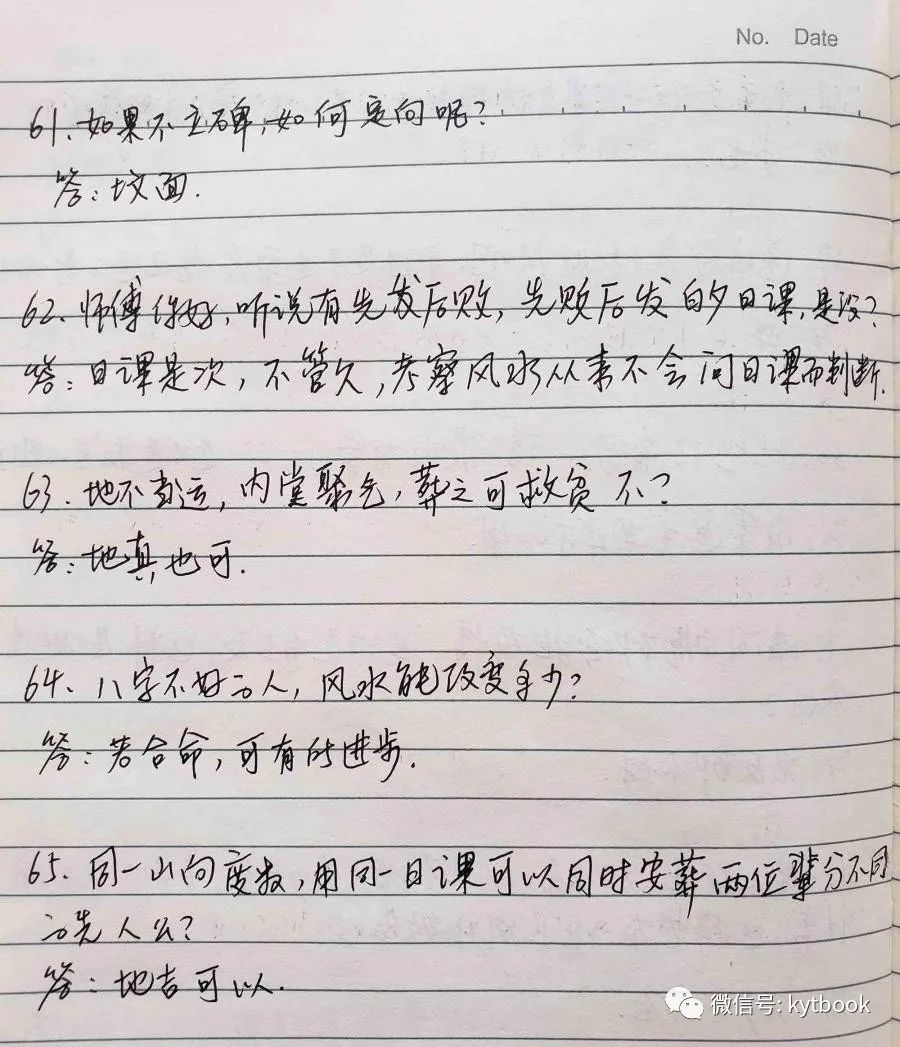 No. Date
61. 如果不立碑,如何定向呢?
答:坟面.
62、师傅你好,听说有先发后败,先败后发的日课,是没?
答:日课是次,不管久,考察风水从来不会问日课而判断.
63.地不当运,内堂聚气,葬之可救贫不?
答:地真也可.
64、八字不好的人,风水能改变多少?
答:若合命,可有所进步.
65.同一山向度数,用同一日课可以同时安葬两位辈分不同
的先人公?
答:地吉可以.
微信号: kytbook